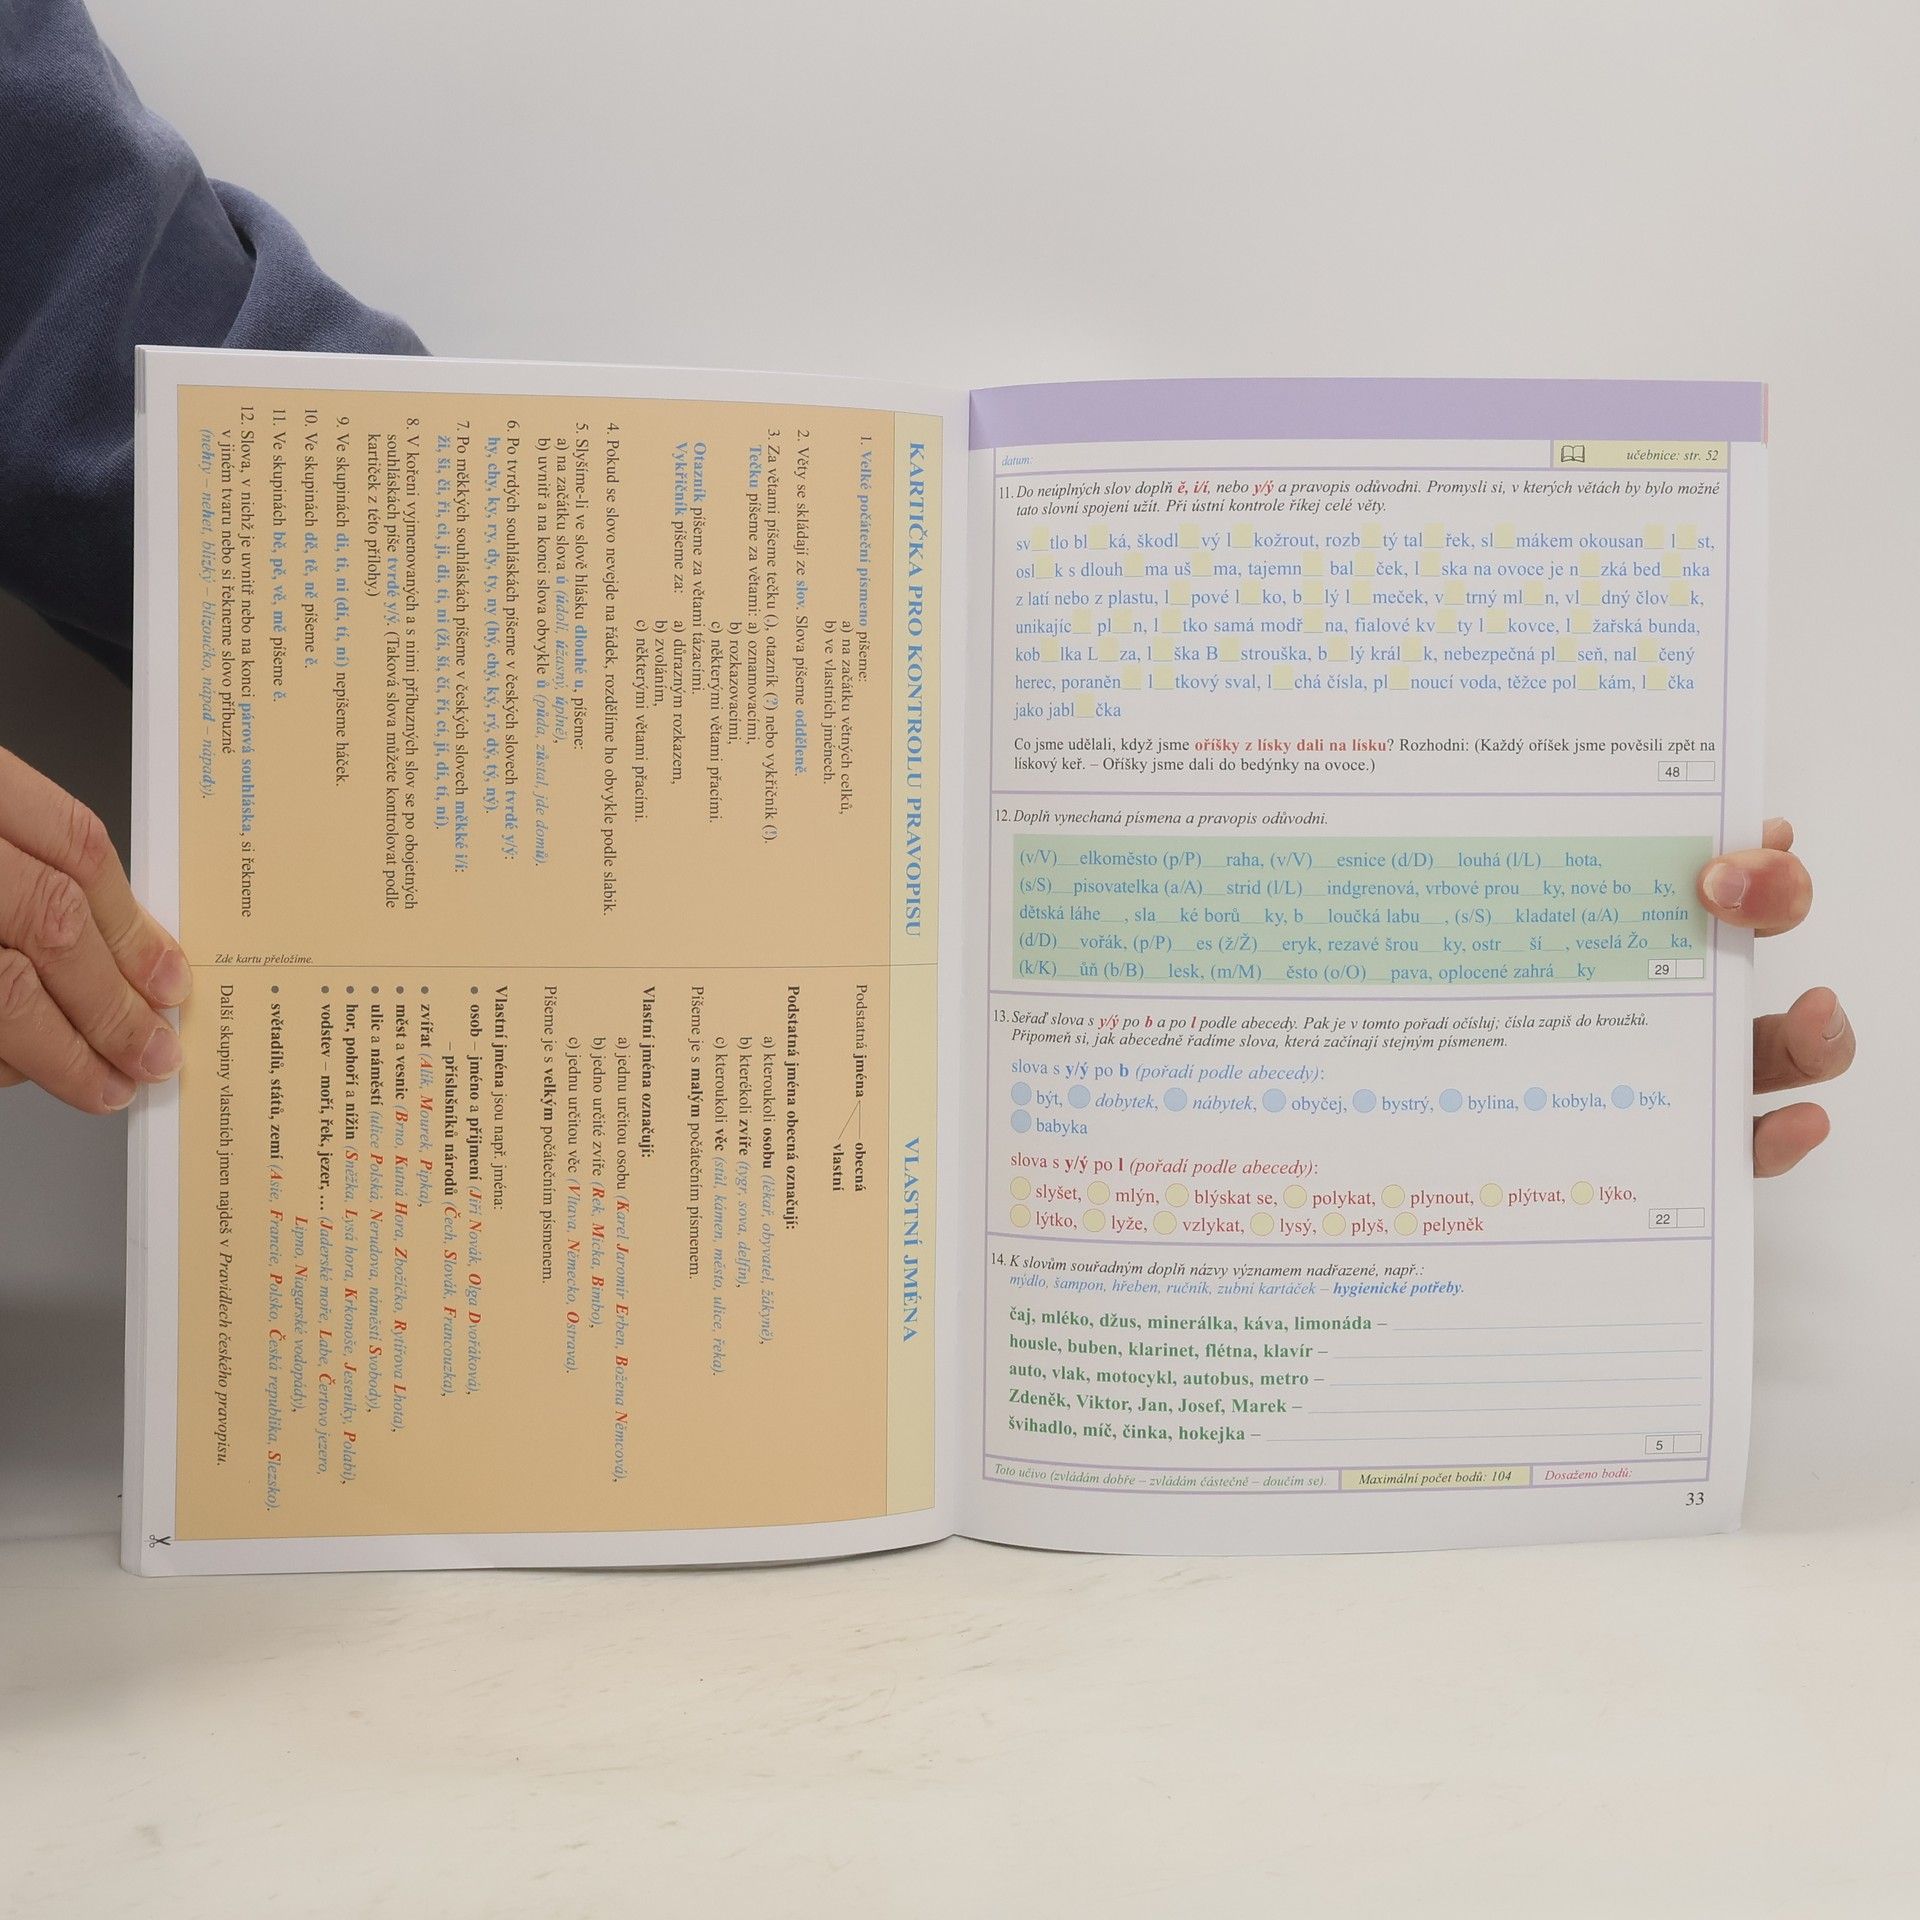 KARTIČKA PRO KONTROLU PRAVOPISU
1. Velké počáteční písmeno píšeme:
a) na začátku větných celků,
b) ve vlastních jménech.
2. Věty se skládají ze slov. Slova píšeme odděleně.
3. Za větami píšeme tečku (.), otazník (?) nebo vykřičník (!).
Tečku píšeme za větami: a) oznamovacími,
b) rozkazovacími,
c) některými větami přacími.
Otazník píšeme za větami tázacími.
Vykřičník píšeme za: a) důrazným rozkazem,
b) zvoláním,
c) některými větami přacími.
4. Pokud se slovo nevejde na řádek, rozdělíme ho obvykle podle slabik.
5. Slyšíme-li ve slově hlásku dlouhé u, píšeme:
a) na začátku slova ú (údolí, úžasný, úplně),
b) uvnitř a na konci slova obvykle ů (půda, zůstal, jde domů).
6. Po tvrdých souhláskách píšeme v českých slovech tvrdé y/ý:
hy, chy, ky, ry, dy, ty, ny (hý, chý, ký, rý, dý, tý, ný).
7. Po měkkých souhláskách píšeme v českých slovech měkké i/í:
ži, ši, či, ři, ci, ji, di, ti, ni (ží, ší, čí, ří, cí, jí, dí, tí, ní).
8. V kořeni vyjmenovaných a s nimi příbuzných slov se po obojetných
souhláskách píše tvrdé y/ý. (Taková slova můžete kontrolovat podle
kartiček z této přílohy.)
9. Ve skupinách di, ti, ni (dí, tí, ní) nepíšeme háček.
10. Ve skupinách dě, tě, ně píšeme ě.
11. Ve skupinách bě, pě, vě, mě píšeme ě.
12. Slova, v nichž je uvnitř nebo na konci párová souhláska, si řekneme
v jiném tvaru nebo si řekneme slovo příbuzné
(nehty – nehet, blízký – blizoučko, nápad – nápady).
Zde kartu přeložíme.
VLASTNÍ JMÉNA
Podstatná jména obecná
vlastní
Podstatná jména obecná označují:
a) kteroukoli osobu (lékař, obyvatel, žákyně),
b) kterékoli zvíře (tygr, sova, delfín),
c) kteroukoli věc (stůl, kámen, město, ulice, řeka).
Píšeme je s malým počátečním písmenem.
Vlastní jména označují:
a) jednu určitou osobu (Karel Jaromír Erben, Božena Němcová),
b) jedno určité zvíře (Rek, Micka, Bimbo),
c) jednu určitou věc (Vltava, Německo, Ostrava).
Píšeme je s velkým počátečním písmenem.
Vlastní jména jsou např. jména:
• osob – jméno a příjmení (Jiří Novák, Olga Dvořáková),
– příslušníků národů (Čech, Slovák, Francouzka),
• zvířat (Alík, Mourek, Pipka),
• měst a vesnic (Brno, Kutná Hora, Zbožíčko, Rytířova Lhota),
• ulic a náměstí (ulice Polská, Nerudova, náměstí Svobody),
• hor, pohoří a nížin (Sněžka, Lysá hora, Krkonoše, Jeseníky, Polabí),
• vodstev – moří, řek, jezer, … (Jaderské moře, Labe, Čertovo jezero,
Lipno, Niagarské vodopády),
• světadílů, států, zemí (Asie, Francie, Polsko, Česká republika, Slezsko).
Další skupiny vlastních jmen najdeš v Pravidlech českého pravopisu.
datum:
učebnice: str. 52
11. Do neúplných slov doplň ě, i/í, nebo y/ý a pravopis odůvodni. Promysli si, v kterých větách by bylo možné
tato slovní spojení užít. Při ústní kontrole říkej celé věty.
sv__tlo bl__ká, škodl__vý l__kožrout, rozb__tý tal__řek, sl__mákem okousan__ l__st,
osl__k s dlouh__ma uš__ma, tajemn__ bal__ček, l__ska na ovoce je n__zká bed__nka
z latí nebo z plastu, l__pové l__ko, b__lý l__meček, v__trný ml__n, vl__dný člov__k,
unikajíc__ pl__n, l__tko samá modř__na, fialové kv__ty l__kovce, l__žařská bunda,
kob__lka L__za, l__ška B__strouška, b__lý král__k, nebezpečná pl__seň, nal__čený
herec, poraněn__ l__tkový sval, l__chá čísla, pl__noucí voda, těžce pol__kám, l__čka
jako jabl__čka
Co jsme udělali, když jsme oříšky z lísky dali na lísku? Rozhodni: (Každý oříšek jsme pověsili zpět na
lískový keř. – Oříšky jsme dali do bedýnky na ovoce.)
48
12. Doplň vynechaná písmena a pravopis odůvodni.
(v/V)__elkoměsto (p/P)__raha, (v/V)__esnice (d/D)__louhá (l/L)__hota,
(s/S)__pisovatelka (a/A)__strid (l/L)__indgrenová, vrbové prou__ky, nové bo__ky,
dětská láhe__, sla__ké borů__ky, b__loučká labu__, (s/S)__kladatel (a/A)__ntonín
(d/D)__vořák, (p/P)__es (ž/Ž)__eryk, rezavé šrou__ky, ostr__ší__, veselá Žo__ka,
(k/K)__ůň (b/B)__lesk, (m/M)__ěsto (o/O)__pava, oplocené zahrá__ky
29
13. Seřaď slova s y/ý po b a po l podle abecedy. Pak je v tomto pořadí očísluj; čísla zapiš do kroužků.
Připomeň si, jak abecedně řadíme slova, která začínají stejným písmenem.
slova s y/ý po b (pořadí podle abecedy):
být, dobytek, nábytek, obyčej, bystrý, bylina, kobyla, býk,
babyka
slova s y/ý po l (pořadí podle abecedy):
slyšet, mlýn, blýskat se, polykat, plynout, plýtvat, lýko,
lýtko, lyže, vzlykat, lysý, plyš, pelyněk
22
14. K slovům souřadným doplň názvy významem nadřazené, např.:
mýdlo, šampon, hřeben, ručník, zubní kartáček – hygienické potřeby.
čaj, mléko, džus, minerálka, káva, limonáda –
housle, buben, klarinet, flétna, klavír –
auto, vlak, motocykl, autobus, metro –
Zdeněk, Viktor, Jan, Josef, Marek –
švihadlo, míč, činka, hokejka –
5
Toto učivo (zvládám dobře – zvládám částečně – doučím se).
Maximální počet bodů: 104
Dosaženo bodů:
33